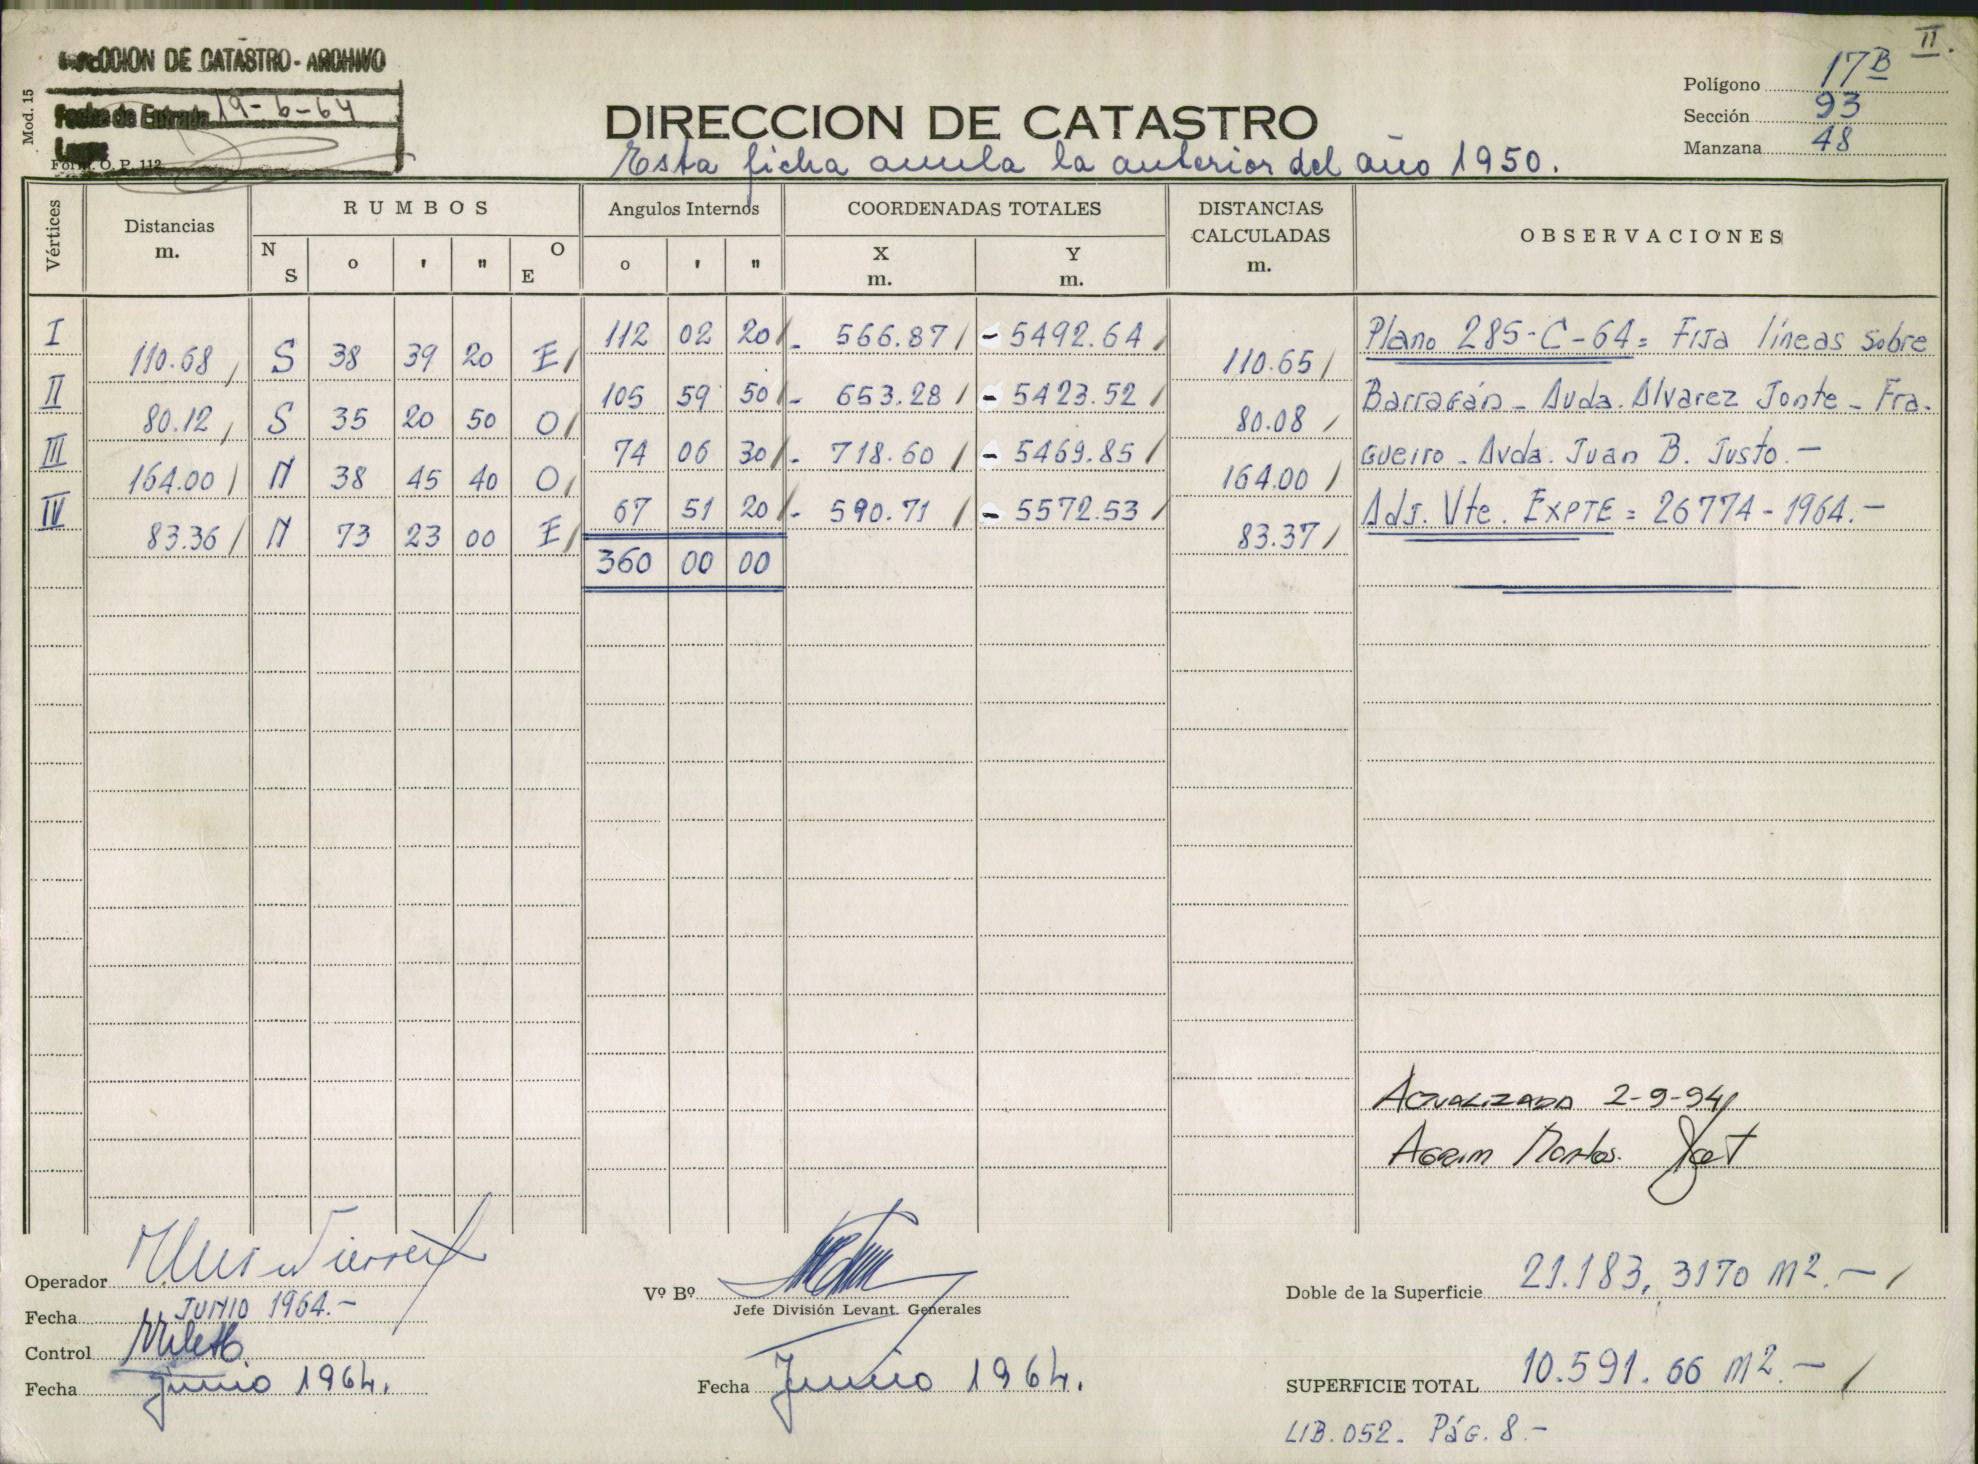 DIRECCION DE CATASTRO - ARCHIVO
Fecha de Entrada 19-6-64
Form. O. P. 112
Mod. 15
II.
DIRECCION DE CATASTRO
Esta ficha anula la anterior del año 1950.
Polígono 17B
Sección 93
Manzana 48
Vértices Distancias m. RUMBOS N S o ' " O E Angulos Internos o ' " COORDENADAS TOTALES X m. Y m. DISTANCIAS CALCULADAS m. OBSERVACIONES
I 112 02 20 - 566.87 - 5492.64 Plano 285-C-64= Fija líneas sobre
110.68 S 38 39 20 E 110.65
II 105 59 50 - 653.28 - 5423.52 Barragán - Avda. Alvarez Jonte - Fra-
80.12 S 35 20 50 O 80.08
III 74 06 30 - 718.60 - 5469.85 gueiro - Avda. Juan B. Justo.-
164.00 N 38 45 40 O 164.00
IV 67 51 20 - 590.71 - 5572.53 Adj. Vte. EXPTE = 26774-1964.-
83.36 N 73 23 00 E 83.37
360 00 00
ACTUALIZADA 2-9-94
AGRIM
Operador
Fecha JUNIO 1964.-
Control
Fecha Junio 1964.
Vº Bº
Jefe División Levant. Generales
Fecha Junio 1964.
Doble de la Superficie 21.183,3170 m2.-
SUPERFICIE TOTAL 10.591.66 m2.-
LIB. 052. Pág. 8.-